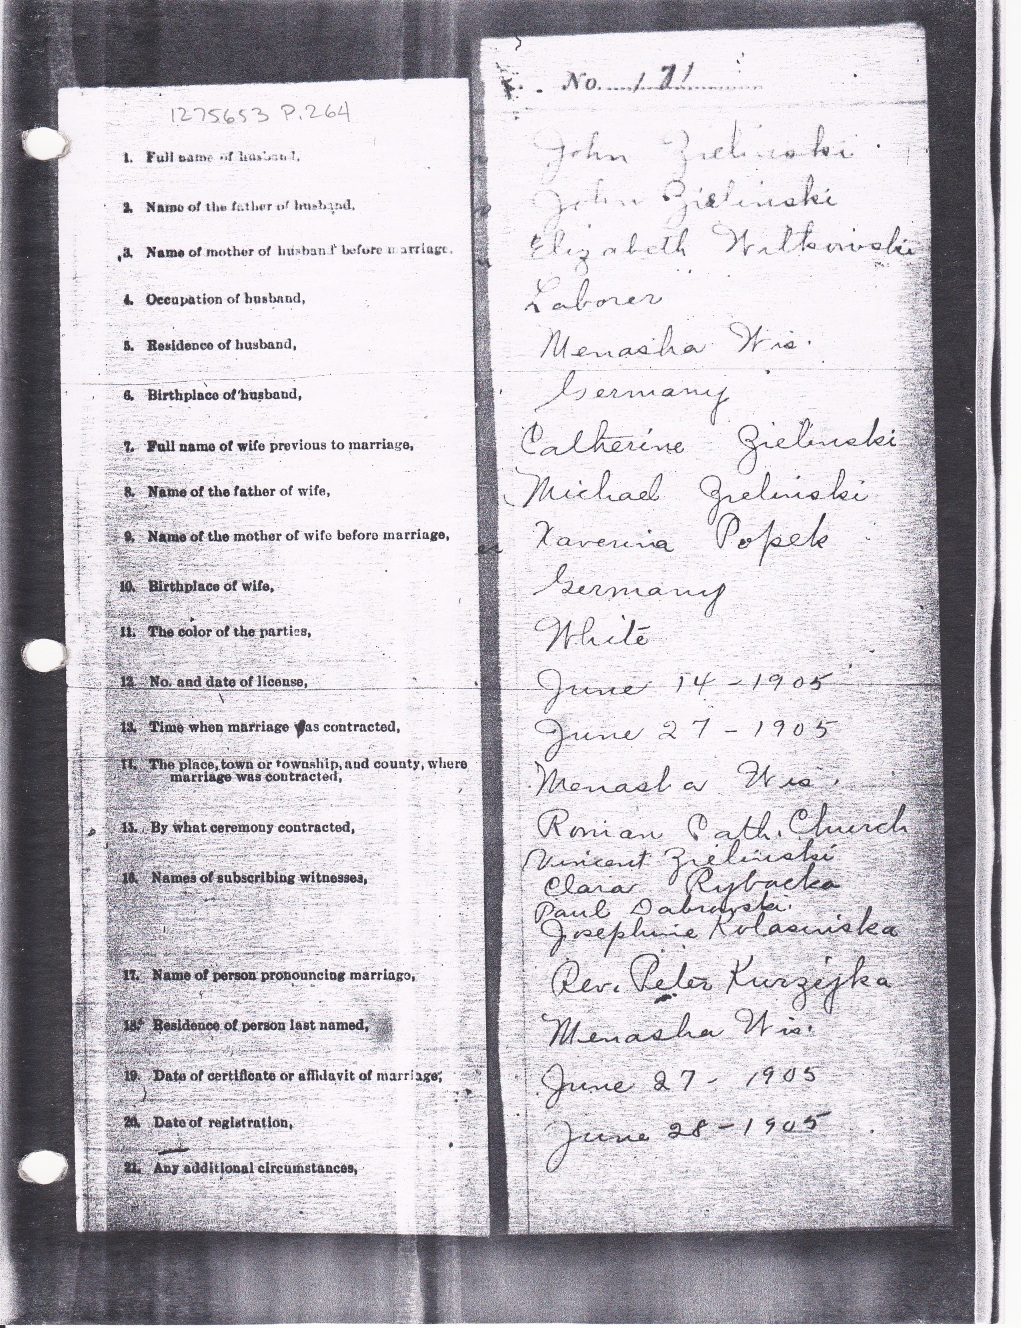 1275653 P.264
No. 171
1. Full name of husband, John Zielinski
2. Name of the father of husband, John Zielinski
3. Name of mother of husband before marriage. Elizabeth Witkowski
4. Occupation of husband, Laborer
5. Residence of husband, Menasha Wis.
6. Birthplace of husband, Germany
7. Full name of wife previous to marriage, Catherine Zielinski
8. Name of the father of wife, Michael Zielinski
9. Name of the mother of wife before marriage, Xaverina Popek
10. Birthplace of wife, Germany
11. The color of the parties, White
12. No. and date of license, June 14-1905
13. Time when marriage was contracted, June 27-1905
14. The place, town or township, and county, where
marriage was contracted, Menasha Wis.
15. By what ceremony contracted, Roman Cath. Church
16. Names of subscribing witnesses, Vincent Zielinski
Clara Rybacka
Paul
Josephine Kolasinska
17. Name of person pronouncing marriage, Rev. Peter Kurzejka
18. Residence of person last named, Menasha Wis.
19. Date of certificate or affidavit of marriage, June 27-1905
20. Date of registration, June 28-1905
21. Any additional circumstances,